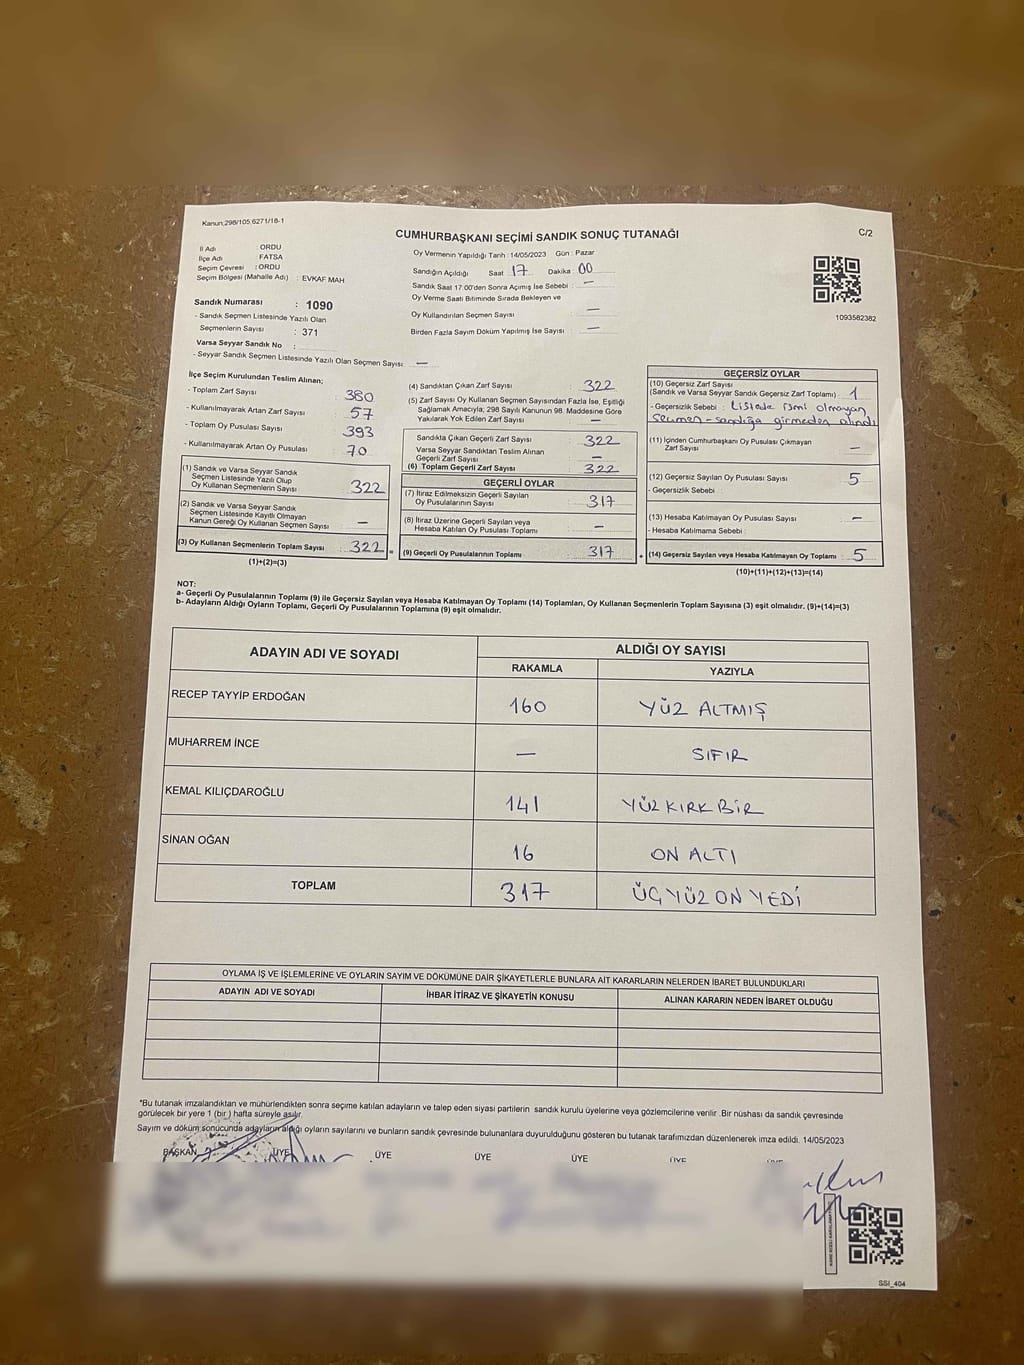 Kanun,298/105,6271/18-1
CUMHURBAŞKANI SEÇİMİ SANDIK SONUÇ TUTANAĞI
C/2
İl Adı : ORDU
İlçe Adı FATSA
Seçim Çevresi : ORDU
Seçim Bölgesi (Mahalle Adı) : EVKAF MAH
Oy Vermenin Yapıldığı Tarih :14/05/2023 Gün : Pazar
Sandığın Açıldığı Saat 17 Dakika : 00
Sandık Saat 17:00'den Sonra Açılmış İse Sebebi : —
Oy Verme Saati Bitiminde Sırada Bekleyen ve
Oy Kullandırılan Seçmen Sayısı : —
Birden Fazla Sayım Döküm Yapılmış İse Sayısı : —
1093582382
Sandık Numarası : 1090
- Sandık Seçmen Listesinde Yazılı Olan
Seçmenlerin Sayısı : 371
Varsa Seyyar Sandık No :
- Seyyar Sandık Seçmen Listesinde Yazılı Olan Seçmen Sayısı: —
İlçe Seçim Kurulundan Teslim Alınan;
- Toplam Zarf Sayısı 380
- Kullanılmayarak Artan Zarf Sayısı : 57
- Toplam Oy Pusulası Sayısı 393
- Kullanılmayarak Artan Oy Pusulası : 70
(1) Sandık ve Varsa Seyyar Sandık
Seçmen Listesinde Yazılı Olup
Oy Kullanan Seçmenlerin Sayısı 322
(2) Sandık ve Varsa Seyyar Sandık
Seçmen Listesinde Kayıtlı Olmayan
Kanun Gereği Oy Kullanan Seçmen Sayısı —
(3) Oy Kullanan Seçmenlerin Toplam Sayısı 322
(1)+(2)=(3)
(4) Sandıktan Çıkan Zarf Sayısı : 322
(5) Zarf Sayısı Oy Kullanan Seçmen Sayısından Fazla İse, Eşitliği
Sağlamak Amacıyla; 298 Sayılı Kanunun 98. Maddesine Göre
Yakılarak Yok Edilen Zarf Sayısı : —
Sandıkta Çıkan Geçerli Zarf Sayısı : 322
Varsa Seyyar Sandıktan Teslim Alınan
Geçerli Zarf Sayısı —
(6) Toplam Geçerli Zarf Sayısı : 322
GEÇERLİ OYLAR
(7) İtiraz Edilmeksizin Geçerli Sayılan
Oy Pusulalarının Sayısı : 317
(8) İtiraz Üzerine Geçerli Sayılan veya
Hesaba Katılan Oy Pusulası Toplamı : —
(9) Geçerli Oy Pusulalarının Toplamı : 317
GEÇERSİZ OYLAR
(10) Geçersiz Zarf Sayısı
(Sandık ve Varsa Seyyar Sandık Geçersiz Zarf Toplamı) : 1
- Geçersizlik Sebebi : Listede ismi olmayan
seçmen-sandığa girmeden alındı
(11) İçinden Cumhurbaşkanı Oy Pusulası Çıkmayan
Zarf Sayısı —
(12) Geçersiz Sayılan Oy Pusulası Sayısı 5
- Geçersizlik Sebebi :
(13) Hesaba Katılmayan Oy Pusulası Sayısı : —
- Hesaba Katılmama Sebebi :
(14) Geçersiz Sayılan veya Hesaba Katılmayan Oy Toplamı : 5
(10)+(11)+(12)+(13)=(14)
NOT:
a- Geçerli Oy Pusulalarının Toplamı (9) ile Geçersiz Sayılan veya Hesaba Katılmayan Oy Toplamı (14) Toplamları, Oy Kullanan Seçmenlerin Toplam Sayısına (3) eşit olmalıdır. (9)+(14)=(3)
b- Adayların Aldığı Oyların Toplamı, Geçerli Oy Pusulalarının Toplamına (9) eşit olmalıdır.
ADAYIN ADI VE SOYADI ALDIĞI OY SAYISI
RAKAMLA YAZIYLA
RECEP TAYYİP ERDOĞAN 160 YÜZ ALTMIŞ
MUHARREM İNCE — SIFIR
KEMAL KILIÇDAROĞLU 141 YÜZ KIRK BİR
SİNAN OĞAN 16 ON ALTI
TOPLAM 317 ÜÇ YÜZ ON YEDİ
OYLAMA İŞ VE İŞLEMLERİNE VE OYLARIN SAYIM VE DÖKÜMÜNE DAİR ŞİKAYETLERLE BUNLARA AİT KARARLARIN NELERDEN İBARET BULUNDUKLARI
ADAYIN ADI VE SOYADI İHBAR İTİRAZ VE ŞİKAYETİN KONUSU ALINAN KARARIN NEDEN İBARET OLDUĞU
*Bu tutanak imzalandıktan ve mühürlendikten sonra seçime katılan adayların ve talep eden siyasi partilerin sandık kurulu üyelerine veya gözlemcilerine verilir .Bir nüshası da sandık çevresinde
görülecek bir yere 1 (bir ) hafta süreyle asılır.
Sayım ve döküm sonucunda adayların aldığı oyların sayılarını ve bunların sandık çevresinde bulunanlara duyurulduğunu gösteren bu tutanak tarafımızdan düzenlenerek imza edildi. 14/05/2023
BAŞKAN ÜYE ÜYE ÜYE ÜYE ÜYE
SSİ_404